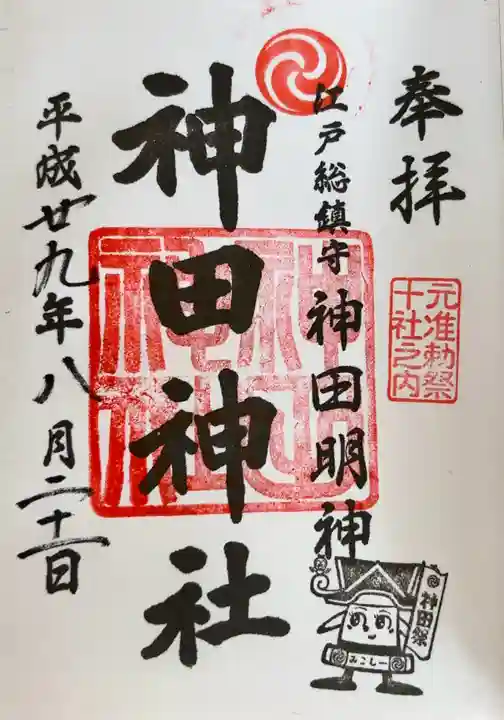 奉拝
元准勅祭
十社之内
江戸総鎮守 神田明神
神田神社
神田神社
平成廿九年八月二十一日
神田祭
みこしー